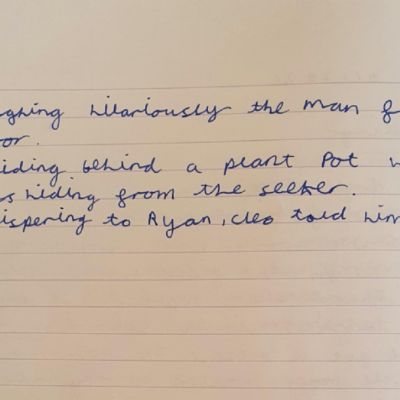 ghing hilariously the man f
or.
iding behind a plant Pot w
s hiding from the seeker.
ispering to Ryan, cleo told him